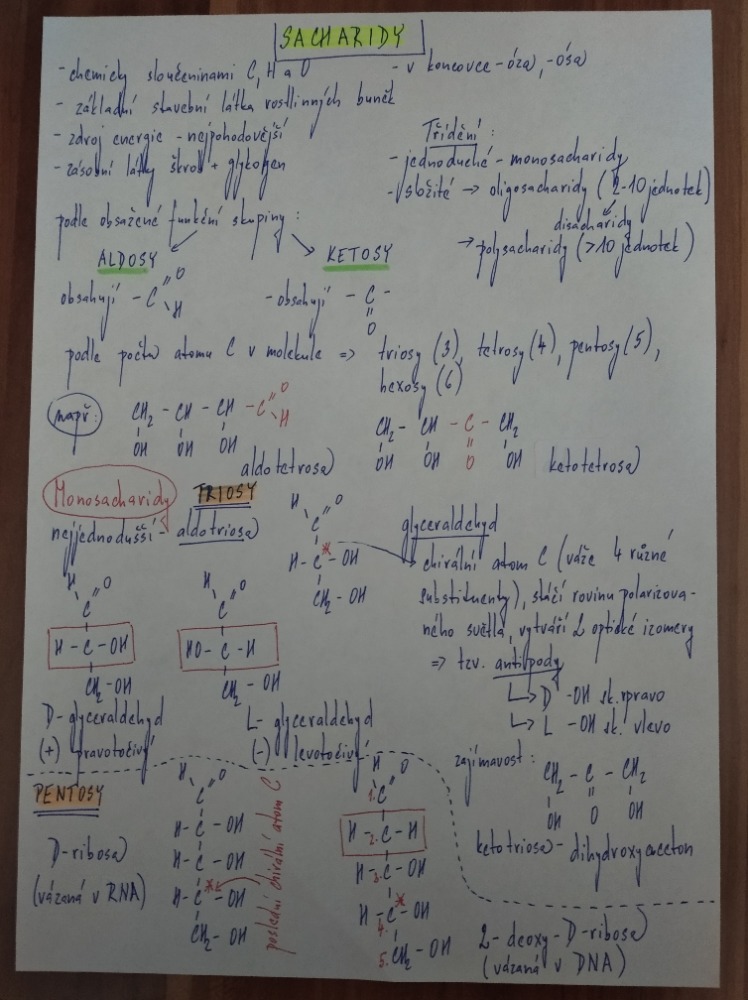 SACHARIDY
- chemicky sloučeninami C, H a O
- v koncovce -óza, -ósa
- základní stavební látka rostlinných buněk
- zdroj energie - nejpohodovější
- zásobní látky škrob + glykogen
Třídění:
- jednoduché - monosacharidy
- složité → oligosacharidy (2-10 jednotek)
disacharidy
→ polysacharidy (>10 jednotek)
podle obsažené funkční skupiny:
ALDOSY
KETOSY
obsahují - C O H
- obsahují - C -
O
podle počtu atomu C v molekule => triosy (3), tetrosy (4), pentosy (5),
hexosy (6)
např:
CH2 - CH - CH - C O H
OH OH OH
aldotetrosa
CH2 - CH - C - CH2
OH OH O OH
ketotetrosa
Monosacharidy
TRIOSY
nejjednodušší - aldotriosa
H O
C
H - C* - OH
CH2 - OH
glyceraldehyd
chirální atom C (váže 4 různé
substituenty), stáčí rovinu polarizova-
ného světla, vytváří 2 optické izomery
=> tzv. antipody
↳ D -OH sk. vpravo
↳ L -OH sk. vlevo
H O
C
H - C - OH
CH2 - OH
D- glyceraldehyd
(+) pravotočivý
H O
C
HO - C - H
CH2 - OH
L- glyceraldehyd
(-) levotočivý
zajímavost:
CH2 - C - CH2
OH O OH
ketotriosa - dihydroxyaceton
PENTOSY
D-ribosa
(vázaná v RNA)
H O
C
H - C - OH
H - C - OH
H - C* - OH
CH2 - OH
poslední chirální atom C
H O
1. C
H - 2. C - H
H - 3. C - OH
H - C* - OH
4.
5. CH2 - OH
2- deoxy - D-ribosa
(vázaná v DNA)